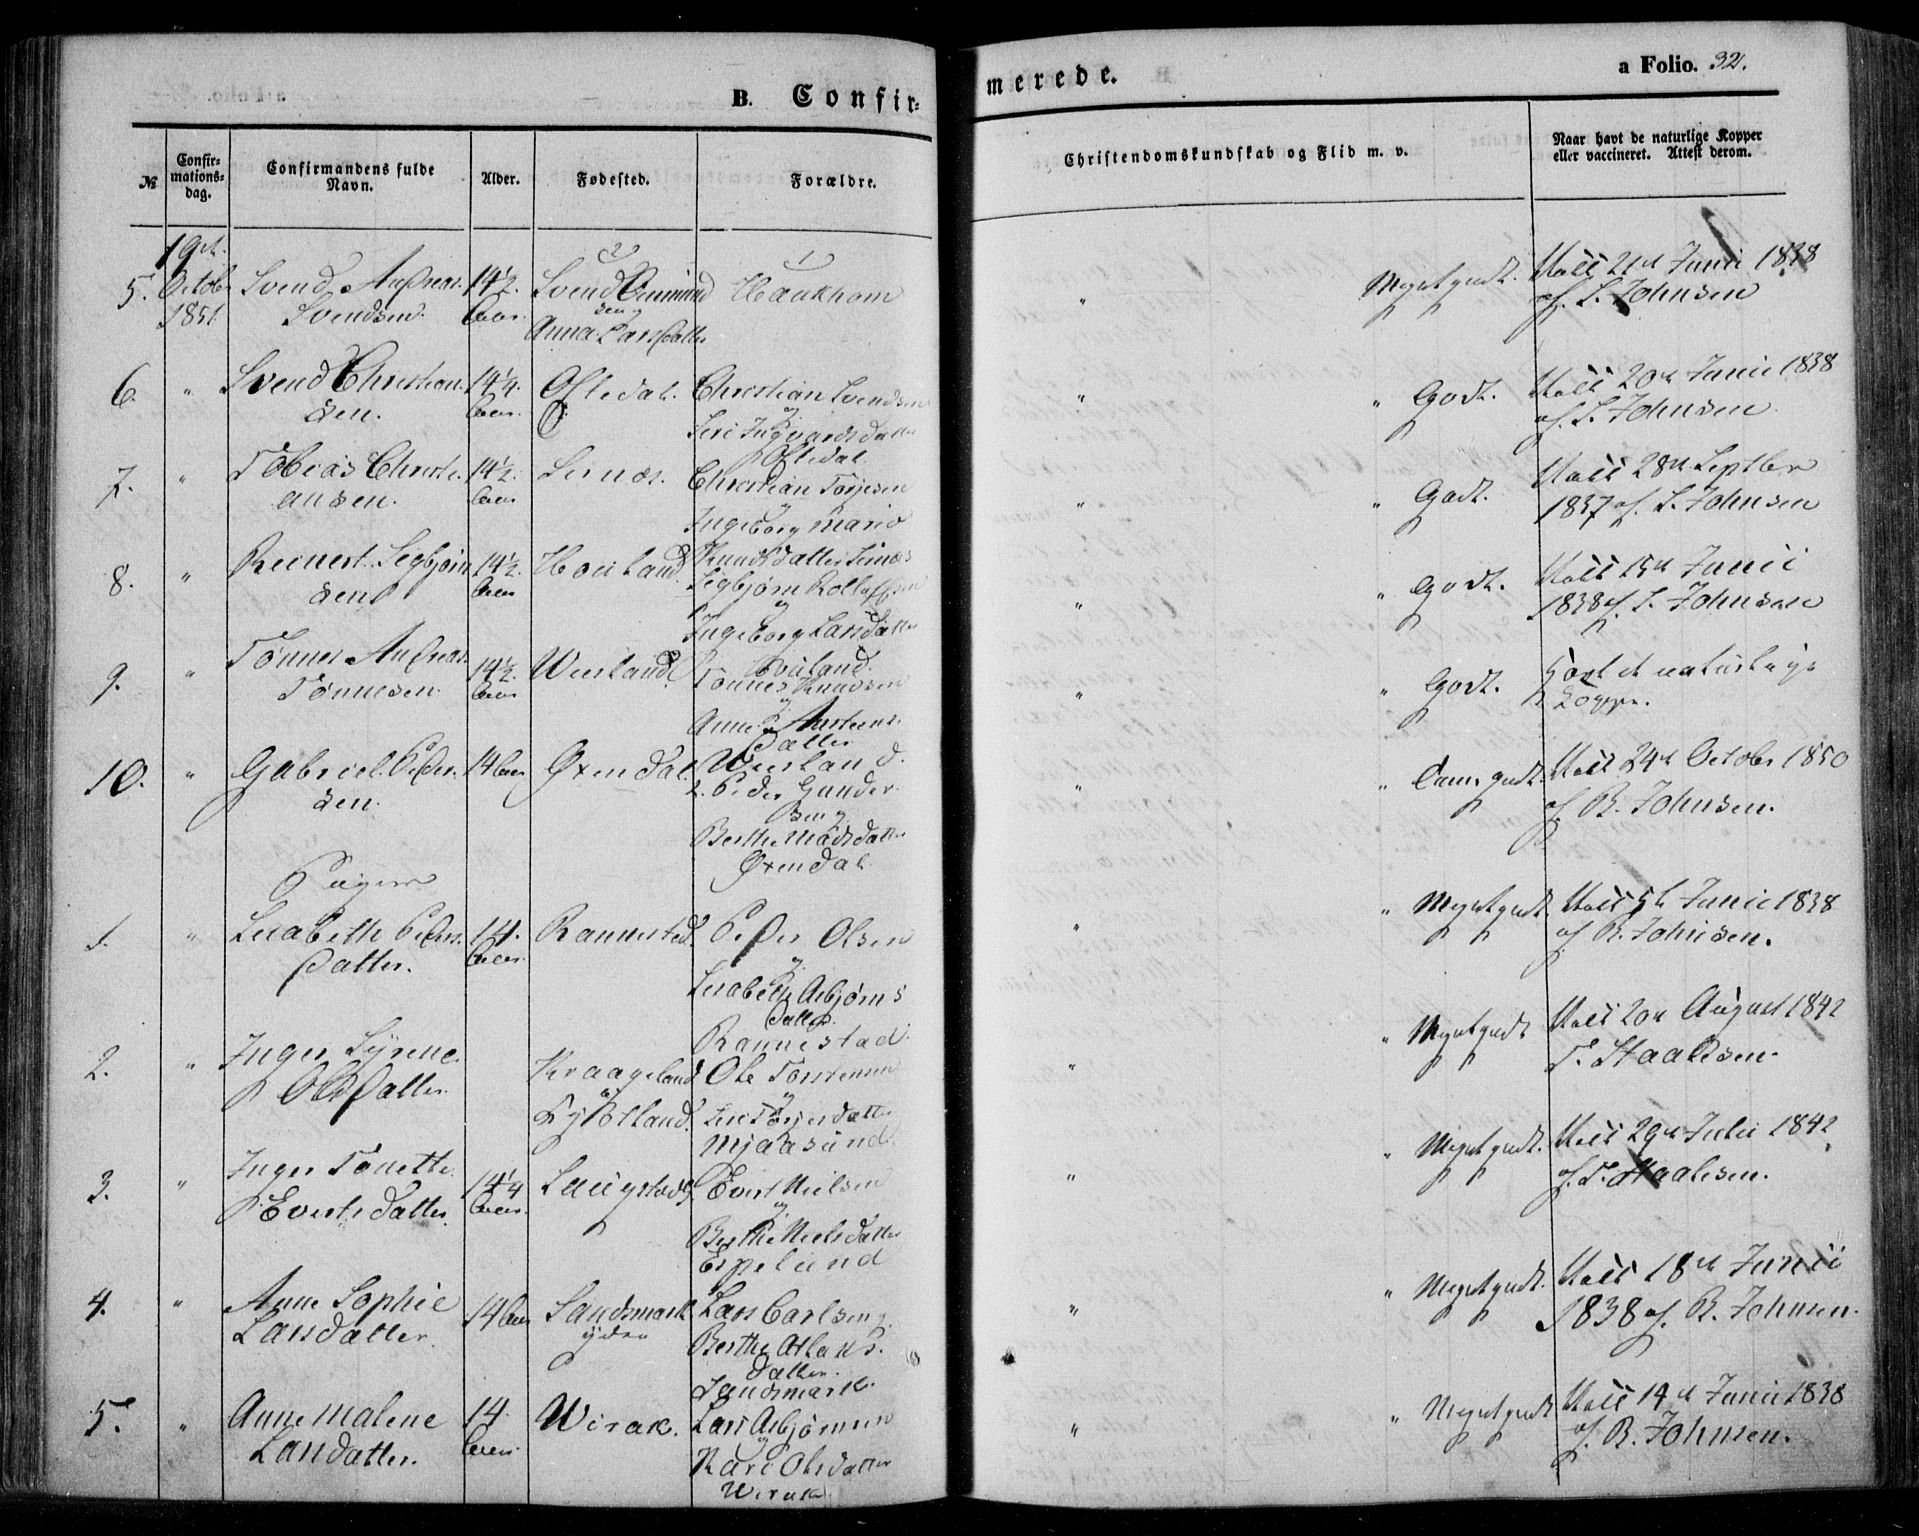 B. Confir-
merede.
a Folio. 32.
№
Confir-
mations-
dag.
Confirmandens fulde
Navn.
Alder.
Fødested.
Forældre.
Christendomskundskab og Flid m. v.
Naar havt de naturlige Kopper
eller vaccineret. Attest derom.
5. 19de October 1851 Svend Andreas Svendsen. 14½ Svend Omund sen Anna Larsdatter Haukhom " Meget godt. 21de Junii 1838 af S. Johnsen
6. " Svend Christian sen. 14¼ Oftedal. Christian Svendsen og Siri Ingvardsdatter Oftedal " " Godt. 20de Junii 1838 af S. Johnsen
7. " Tobias Christi ansen. 14½ Sirnæs. Christian Torjesen og Ingeborg Marie Knudsdatter Sirnæs " " Godt. 28de Septber 1837 af S. Johnsen
8. " Reinert Segbjørn sen 14½ Houland. Segbjørn Rolleffsen og Ingeborg Larsdatter Houland. " " Godt. 15de Junii 1838 af S. Johnsen
9. " Tönnes Andreas Tönnesen. 14½ Tönnes Knudsen og Anne datter " " Godt. havt de naturlige Kopper.
10. " Gabriel Peder sen. 14 Øxendal. Peder Gunder sen og Berthe Madsdatter Øxendal " " godt. 24de October 1850 af R. Johnsen.
Piger
1. " Lisabeth Peders datter. 14. Rannestad. Peder Olsen og Lisabeth Asbjørns datter Rannestad. " " Meget godt. 5te Junii 1838 af R. Johnsen.
2. " Inger Syrene Olsdatter. Kraageland Ole Torstensen og Siri Torjesdatter Mjaasund. " " Meget godt 20de August 1842 T. Staalesen.
3. " Inger Tonette Evertsdatter. 14¼ Laugstad Evert Nielsen og Berthe Nielsdatter Espelund " " Meget godt. 29de Julii 1842 af T. Staalesen.
4. " Anne Sophie Larsdatter. 14 Sandsmark ydre Lars Carlsen og Berthe Atlaks datter. Sandsmark. " " Meget godt. 18de Junii 1838 af R. Johnsen.
5. " Anne Malene Larsdatter. 14. Wirak. Lars Asbjørnsen og Kari Olsdatter Wirak. " " Meget godt 14de Junii 1838 af R. Johnsen.